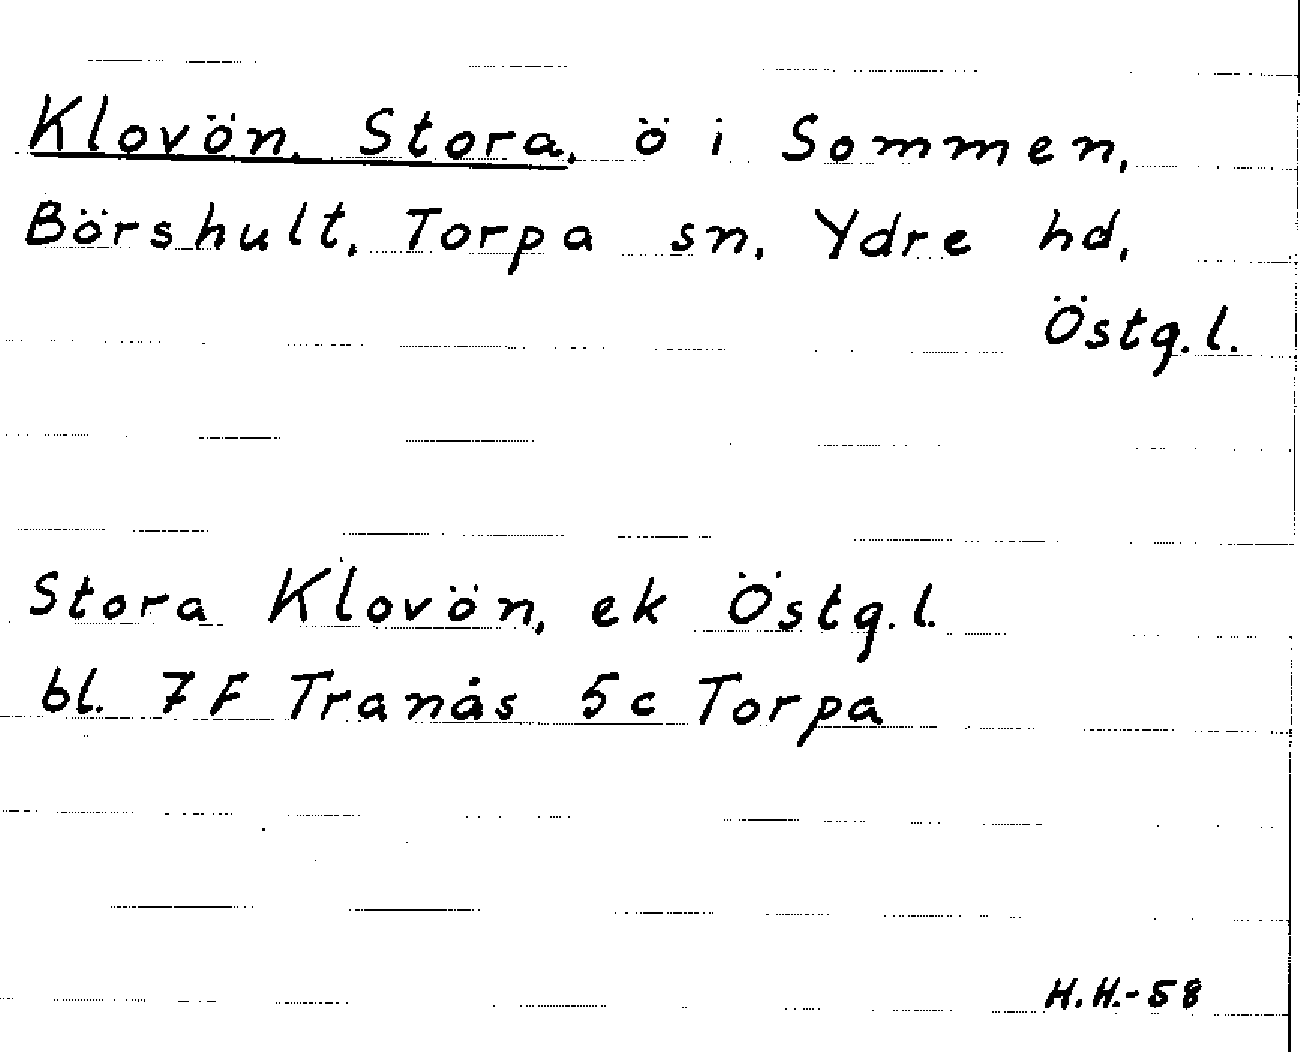 Klovön, Stora, ö i Sommen,
Börshult, Torpa sn, Ydre hd,
Östg.l.
Stora Klovön, ek Östg.l.
bl. 7F Tranås 5c Torpa
H.H.-58